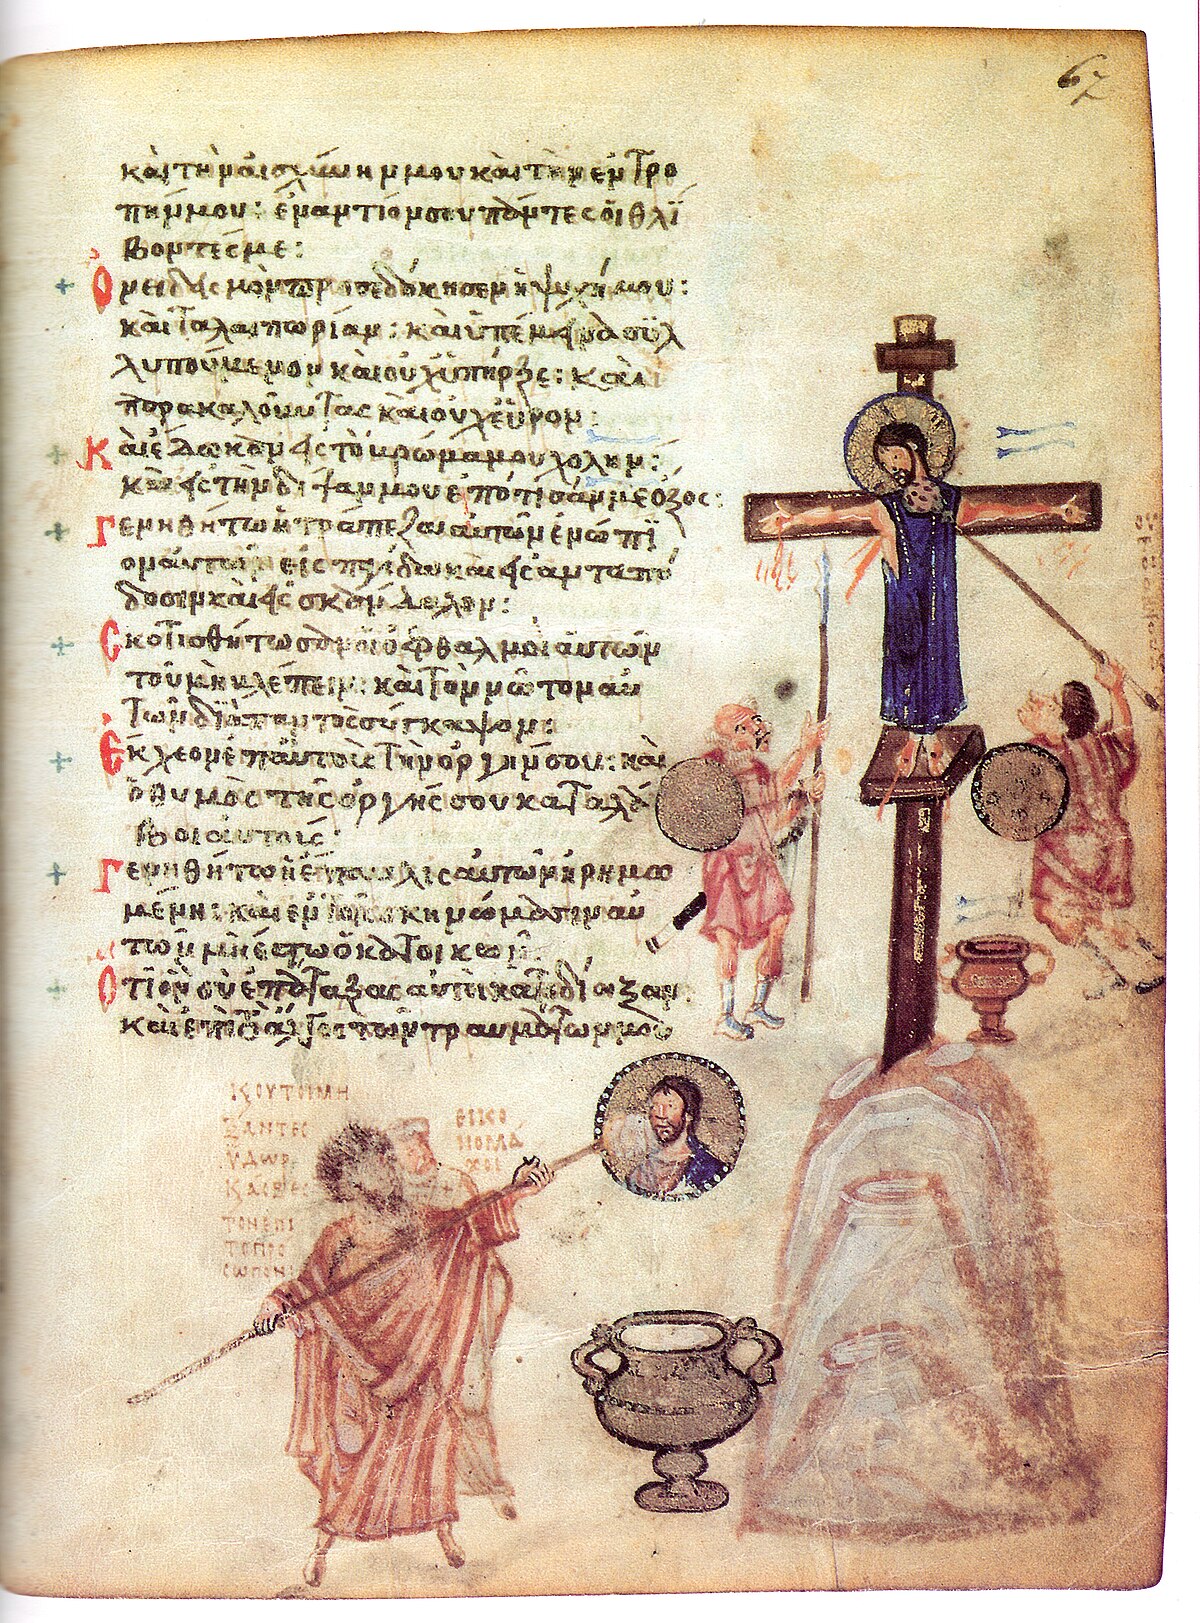 67
καὶ τὴν αἰσχύνην μου καὶ τὴν ἐντρο
πήν μου: ἐναντίον σου πάντες οἱ θλί
βοντές με:
Ὀνειδισμὸν προσεδόκησεν ἡ ψυχή μου:
καὶ ταλαιπωρίαν: καὶ ὑπέμεινα συλ
λυπούμενον καὶ οὐχ ὑπῆρξε: καὶ
παρακαλοῦντας καὶ οὐχ εὗρον:
Καὶ ἔδωκαν εἰς τὸ βρῶμα μου χολὴν:
καὶ εἰς τὴν δίψαν μου ἐπότισάν με ὄξος:
Γενηθήτω ἡ τράπεζα αὐτῶν ἐνώπι
ον αὐτῶν εἰς παγίδα καὶ εἰς ἀνταπό
δοσιν καὶ εἰς σκάνδαλον:
Σκοτισθήτωσαν οἱ ὀφθαλμοὶ αὐτῶν
τοῦ μὴ βλέπειν: καὶ τὸν νῶτον αὐ
τῶν διὰ παντὸς σύγκαμψον:
Ἔκχεον ἐπ αὐτοὺς τὴν ὀργήν σου: καὶ
ὁ θυμὸς τῆς ὀργῆς σου καταλά
βοι αὐτούς:
Γενηθήτω ἡ ἔπαυλις αὐτῶν ἠρημω
μένη: καὶ ἐν τοῖς σκηνώμασιν αὐ
τῶν μὴ ἔστω ὁ κατοικῶν:
Ὅτι ὃν σὺ ἐπάταξας αὐτοὶ κατεδίωξαν
καὶ ἐπὶ τὸ ἄλγος τῶν τραυμάτων μου
ΞΑΝΤΕΣ
ΥΔΩΡ
ΤΟΝ ΕΠΙ
ΤΟ ΠΡΟ
ΣΩΠΟΝ
ΕΙΚΟ
ΝΟΜΑ
ΧΟΙ